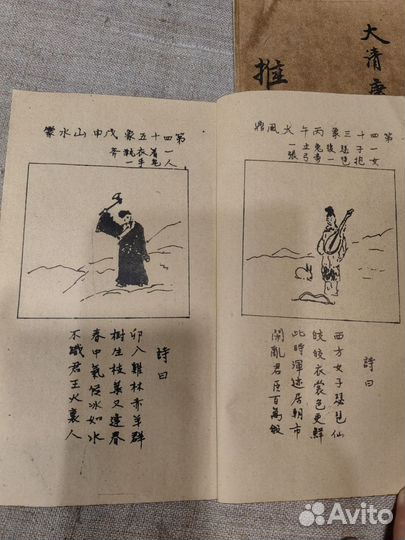 大清
推
四十三象丙午火風鼎
一女子抱琵琶後一兔弓一張
詩曰
西方女子琵琶仙
皎皎衣裳色更鮮
此時渾迹居朝市
鬧亂君臣百萬般
第四十五象戊申山水蒙
一人着皂衣手執一斧
詩曰
卯入雞林赤羊群
樹生枝葉又逢春
春中氣候冰如水
不識君王火裏人
Avito